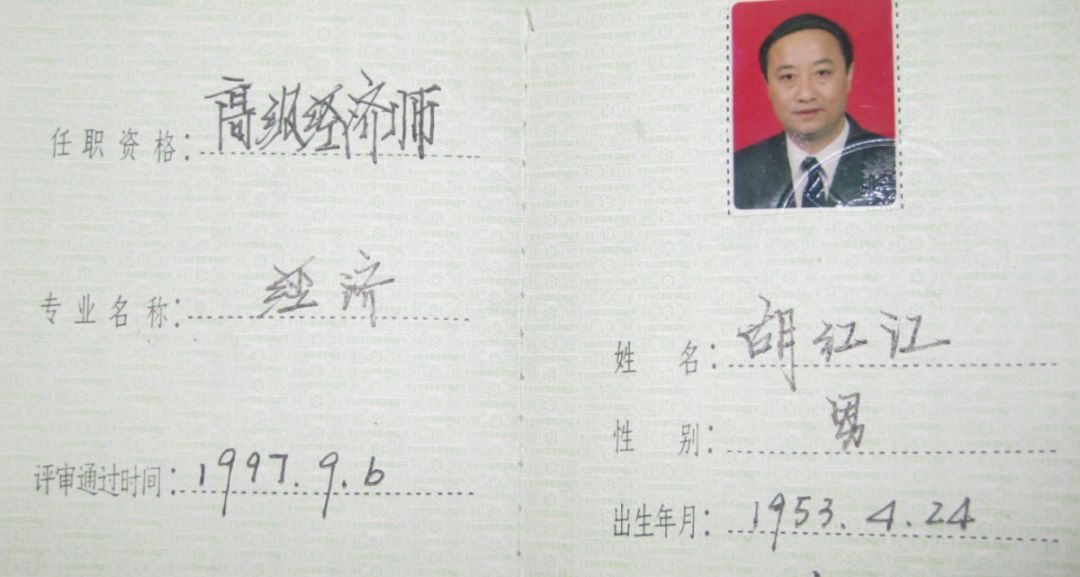 任职资格：高级经济师
专业名称：经济
评审通过时间：1997.9.6
姓名：胡红江
性别：男
出生年月：1953.4.24